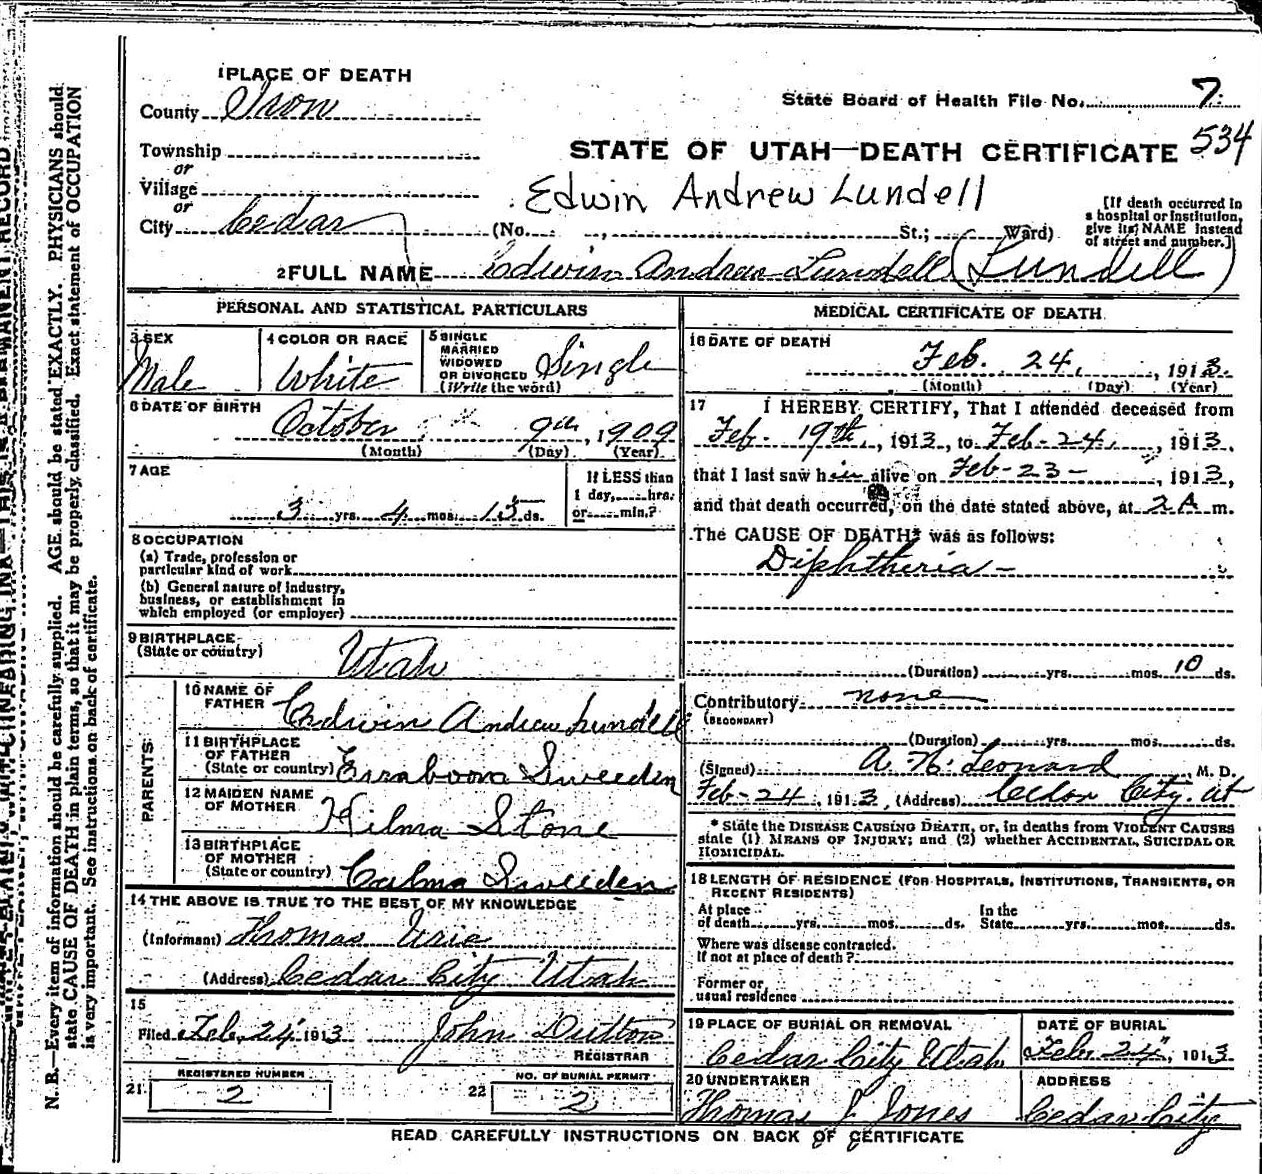 1 PLACE OF DEATH
County Iron
State Board of Health File No. 7
Township
or
Village
or
City Cedar
STATE OF UTAH—DEATH CERTIFICATE 534
Edwin Andrew Lundell
(No. , St.; Ward)
[If death occurred in a hospital or institution, give its NAME instead of street and number.]
2 FULL NAME Edwin Andrew Lundell (Lundell)
PERSONAL AND STATISTICAL PARTICULARS
3 SEX
Male
4 COLOR OR RACE
White
5 SINGLE
MARRIED
WIDOWED
OR DIVORCED
(Write the word)
Single
6 DATE OF BIRTH
October 9th, 1909
(Month) (Day) (Year)
7 AGE
3 yrs. 4 mos. 15 ds.
If LESS than
1 day, hrs.
or min.?
8 OCCUPATION
(a) Trade, profession or
particular kind of work
(b) General nature of industry,
business, or establishment in
which employed (or employer)
9 BIRTHPLACE
(State or country)
Utah
PARENTS
10 NAME OF
FATHER
Edwin Andrew Lundell
11 BIRTHPLACE
OF FATHER
(State or country)
Sweeden
12 MAIDEN NAME
OF MOTHER
Hilma Stone
13 BIRTHPLACE
OF MOTHER
(State or country)
Calma Sweeden
14 THE ABOVE IS TRUE TO THE BEST OF MY KNOWLEDGE
(Informant) Thomas Urie
(Address) Cedar City Utah
15
Filed Feb. 24, 1913 John Dutton
REGISTRAR
21 REGISTERED NUMBER
2
22 NO. OF BURIAL PERMIT
2
MEDICAL CERTIFICATE OF DEATH
16 DATE OF DEATH
Feb. 24, 1913.
(Month) (Day) (Year)
17 I HEREBY CERTIFY, That I attended deceased from
Feb. 19th, 1913, to Feb-24, 1913,
that I last saw him alive on Feb-23-, 1913,
and that death occurred, on the date stated above, at 2 A m.
The CAUSE OF DEATH* was as follows:
Diphtheria-
(Duration) yrs. mos. 10 ds.
Contributory none
(SECONDARY)
(Duration) yrs. mos. ds.
(Signed) A. N. Leonard, M. D.
Feb-24, 1913, (Address) Cedar City. Ut
* State the DISEASE CAUSING DEATH, or, in deaths from VIOLENT CAUSES
state (1) MEANS OF INJURY; and (2) whether ACCIDENTAL, SUICIDAL OR
HOMICIDAL.
18 LENGTH OF RESIDENCE (FOR HOSPITALS, INSTITUTIONS, TRANSIENTS, OR
RECENT RESIDENTS)
At place
of death yrs. mos. ds. In the
State yrs. mos. ds.
Where was disease contracted.
If not at place of death?
Former or
usual residence
19 PLACE OF BURIAL OR REMOVAL
Cedar City Utah
DATE OF BURIAL
Feb. 24", 1913
20 UNDERTAKER
Thomas J Jones
ADDRESS
Cedar City
READ CAREFULLY INSTRUCTIONS ON BACK OF CERTIFICATE
N. B.—Every item of information should be carefully supplied. AGE should be stated EXACTLY. PHYSICIANS should
state CAUSE OF DEATH in plain terms, so that it may be properly classified. Exact statement of OCCUPATION
is very important. See instructions on back of certificate.